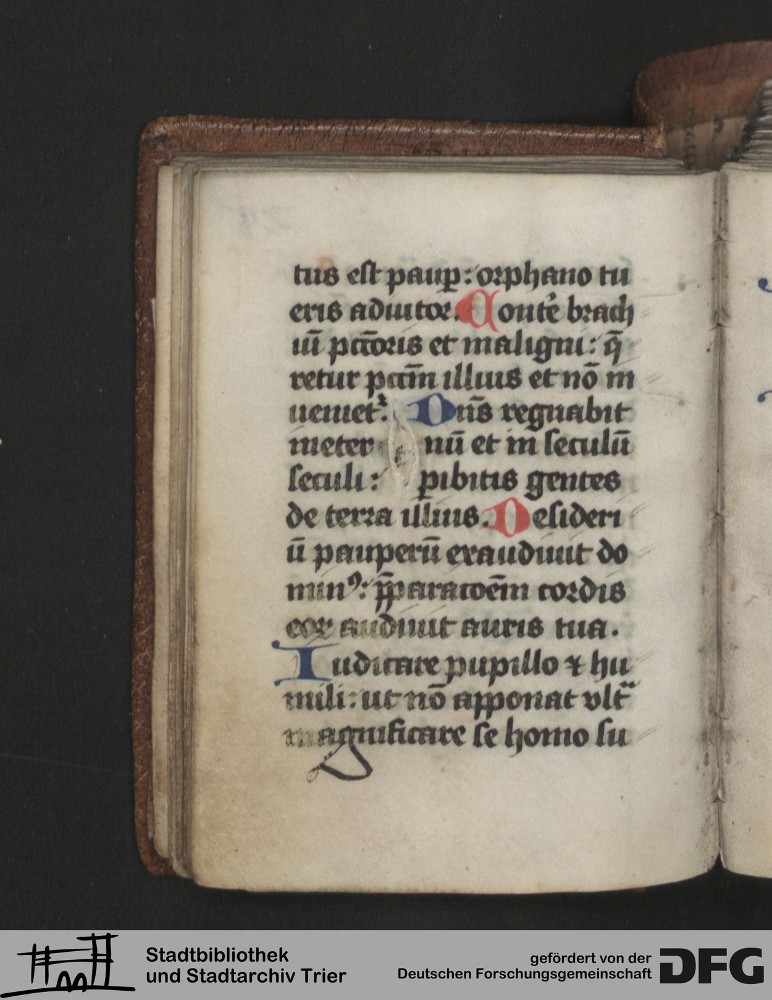 tus est paup̲: orphano tu
eris adiutor. Conte᷑ brach
iū pc̄c̄oris et maligni: q̄
retur pccm̄ illius et nō in
uenietʳ. Dn̄s regnabit
in eter nū et in seculū
seculi: p̲ibitis gentes
de terra illius. Desideri
ū pauperū exaudiuit do
minꝰ: pp̄aracoēm cordis
eoꝝ audiuit auris tua.
Iudicare pupillo ⁊ hu
mili: ut nō apponat vltᵃ
magnificare se homo su
Stadtbibliothek
und Stadtarchiv Trier
gefördert von der
Deutschen Forschungsgemeinschaft
DFG